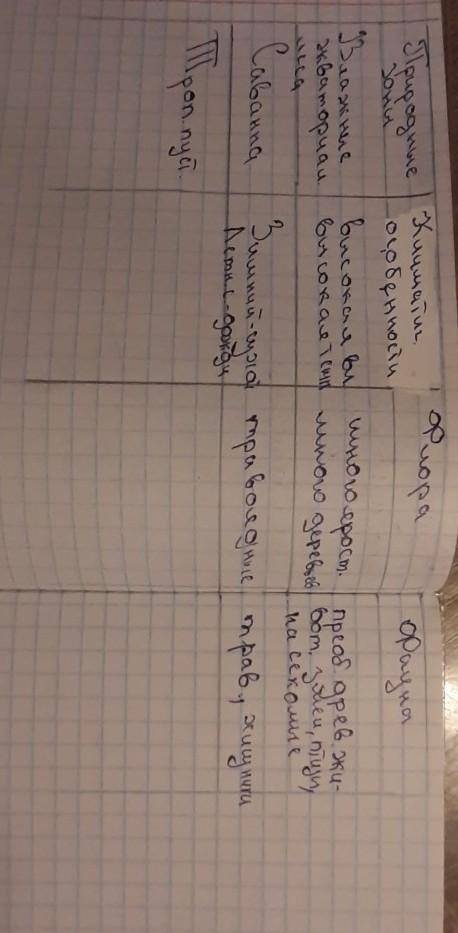 Природные зоны
Климатич. особенности
Флора
Фауна
Влажные экваториал леса
высокая вл
высокая темп
многоярост.
много деревьев
преоб. древ. жи-
вот, змеи, птицы,
насекомые
Саванна
Зимний-сухой
Летние-дожди
травоядные
трав, хищники
Троп. пуст.